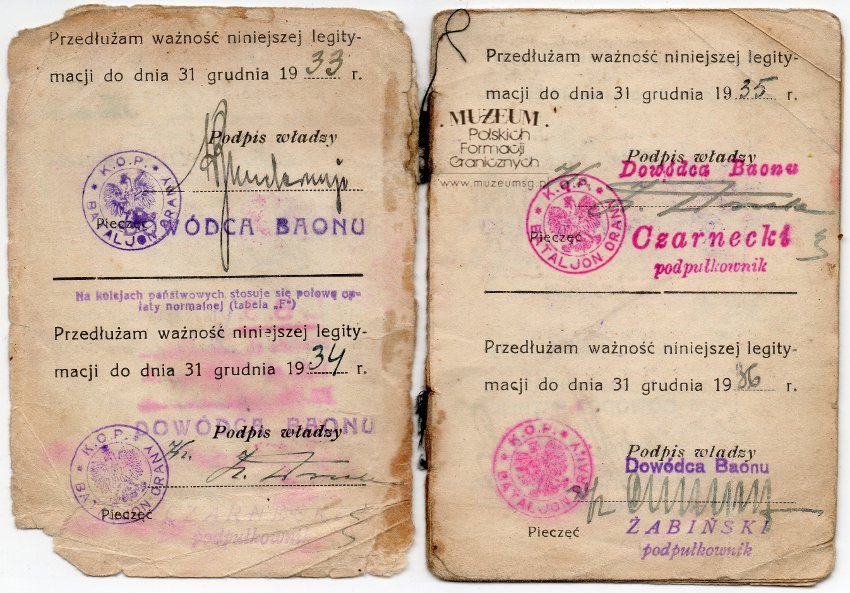 Przedłużam ważność niniejszej legity-
macji do dnia 31 grudnia 1933 r.
Podpis władzy
K.O.P.
BATALJON GRANY
Pieczęć
DOWÓDCA BAONU
Na kolejach państwowych stosuje się połowę op-
łaty normalnej (tabela „F")
Przedłużam ważność niniejszej legity-
macji do dnia 31 grudnia 1934 r.
DOWÓDCA BAONU
Podpis władzy
K.O.P.
BATALJON GRANY
Pieczęć
podpułkownik
Przedłużam ważność niniejszej legity-
macji do dnia 31 grudnia 1935 r.
MUZEUM
Polskich
Formacji
Granicznych
www.muzeumsg.pl
Podpis władzy
Dowódca Baonu
K.O.P.
BATALJON GRANY
Pieczęć
Czarnecki
podpułkownik
Przedłużam ważność niniejszej legity-
macji do dnia 31 grudnia 1936 r.
Podpis władzy
Dowódca Baonu
K.O.P.
BATALJON GRANY
Pieczęć
ŻABIŃSKI
podpułkownik